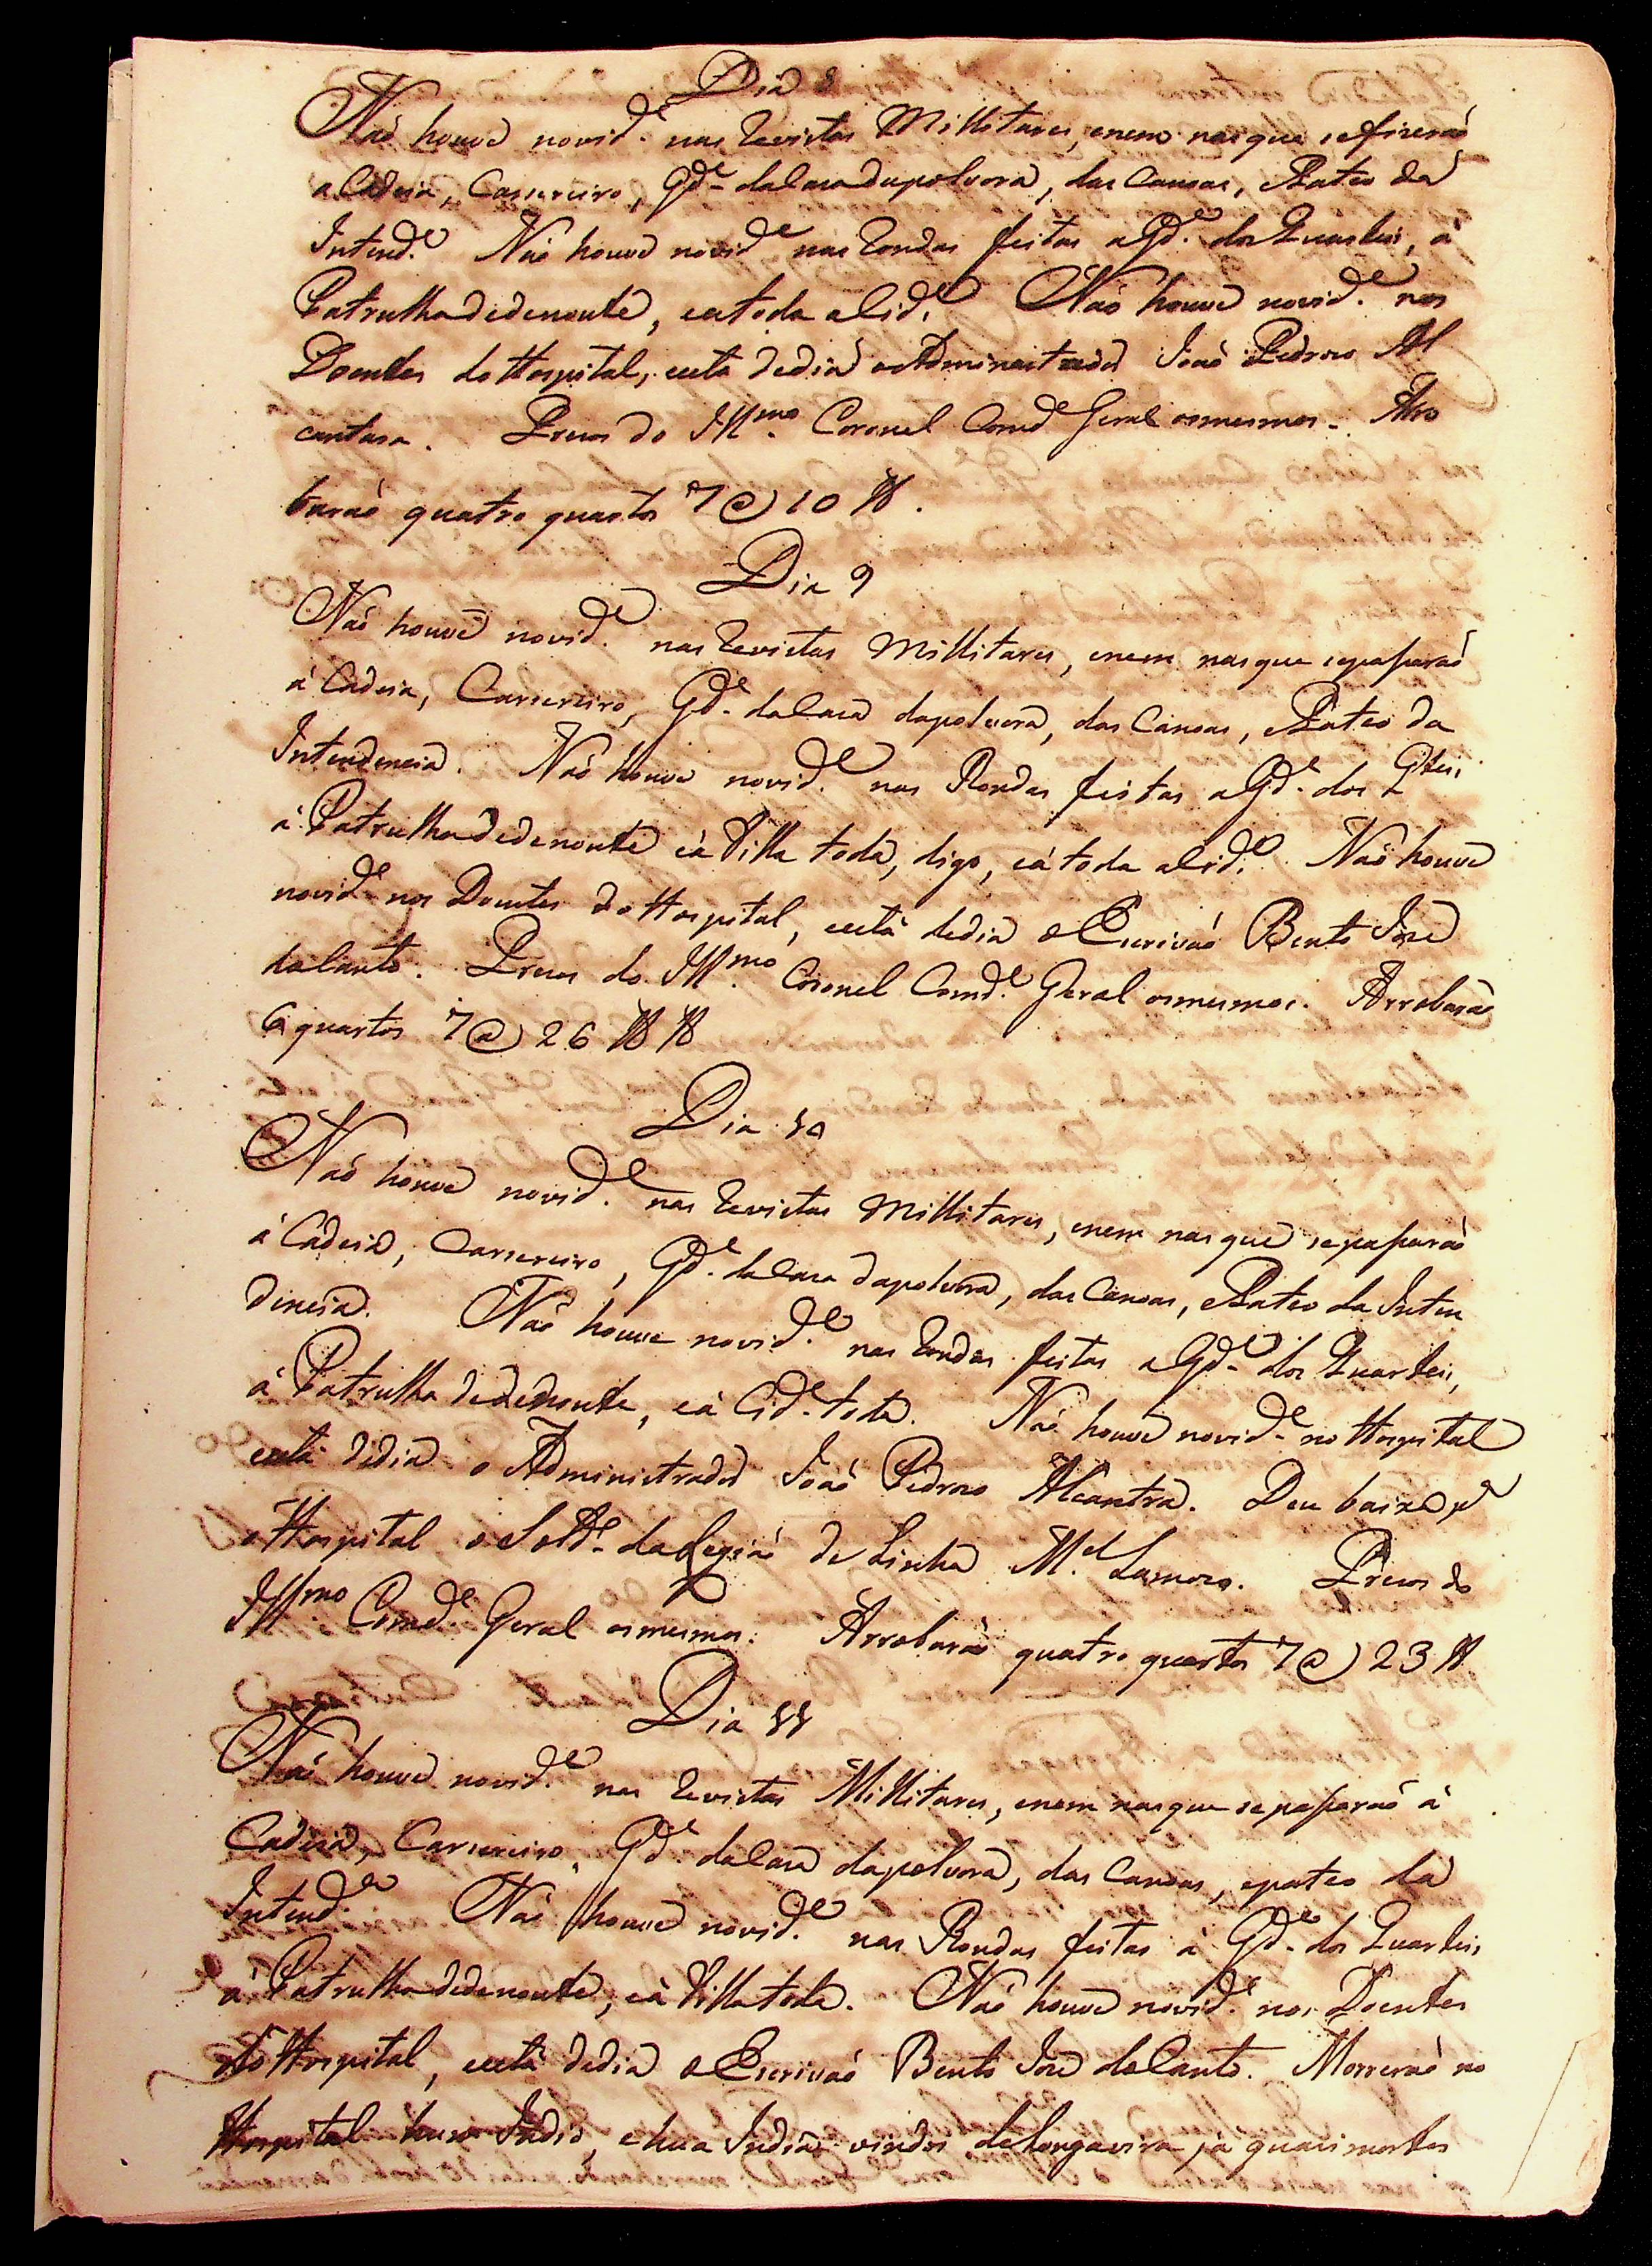 Dia 8
Naõ houve novid.e nas Revistas Millitares, enem nas que sefizeraõ
a Cadeia, Carsereiro, Gd.e dacasa dapolvora, das Canoas, ePateo da
Intend.a Naõ houve novid.e nas Rondas feitas aGd.e dos Quarteis, à
Patrulha dedenoute, eatoda aCid.e Naõ houve novid.e nos
Doentes do Hospital, está dedia oAdministrador Joaõ Pedrozo Al
cantara. Prezos do Ill.mo Coronel Comd.e Geral osmesmos. Arro
baraõ quatro quartos 7@ 10 lb.
Dia 9
Naõ houve novid.e nas Revistas Millitares, enem nasque sepaçaraõ
à Cadeia, Carsereiro, Gd.e dacasa dapolvora, das Canoas, ePateo da
Intendencia. Naõ houve novid.e nas Rondas feitas aGd.e dos Qteis,
à Patrulha dedenoute eà Villa toda, digo, eà toda aCid.e Naõ houve
novid.e nos Doentes do Hospital, està dedia oEscrivaõ Bento Joze
doCanto. Prezos do Ill.mo Coronel Comd.e Geral osmesmos. Arrobaraõ
6 quartos 7@ 26 lb lb
Dia 10
Naõ houve novid.e nas Revistas Millitares, enem nasque sepaçaraõ
à Cadeia, Carsereiro, Gd.e dacasa dapolvora, das Canoas, ePateo da Inten
dencia. Naõ houve novid.e nas Rondas feitas aGd.e dos Quarteis,
à Patrulha dedenoute, eà Cid.e toda. Naõ houve novid.e no Hospital
està dedia o Administrador Joaõ Pedrozo Alcantra. Deu baixa p.a
o Hospital o Sold.o daLegiaõ de Linha M.el Prezos do
Ill.mo Comd.e Geral osmesmos. Arrobaraõ quatro quartos 7@ 23 lb
Dia 11
Naõ houve novid.e nas Revistas Millitares, enem nasque sepaçaraõ à
Cadeia, Carsereiro, Gd.e dacasa dapolvora, das Canoas, epateo da
Intend.a Naõ houve novid.e nas Rondas feitas à Gd.e dos Quarteis,
à Patrulha dedenoute, eà Villa toda. Naõ houve novid.e nos Doentes
do Hospital, està dedia oEscrivaõ Bento Joze doCanto. Morreraõ no
Hospital hum Indio, ehua India vindos já quazi mortos